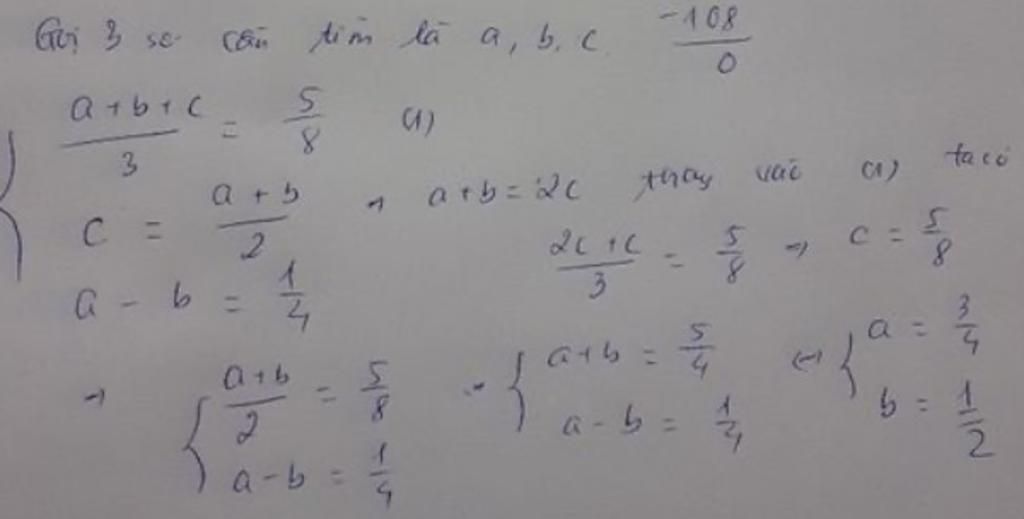 Gọi 3 số cần tìm là a, b, c. -108/0
(a+b+c)/3 = 5/8 (1)
c = (a+b)/2 → a+b = 2c thay vào (1) ta có
(2c+c)/3 = 5/8 → c = 5/8
a - b = 1/4
→ { (a+b)/2 = 5/8
a-b = 1/4
{ a+b = 5/4
a-b = 1/4
↔ { a = 3/4
b = 1/2